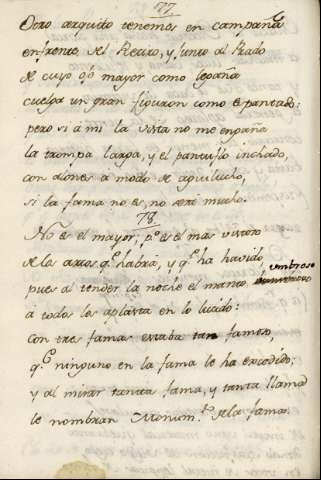 77.
Otro arquito tenemos en campaña
enfrente del Retiro, y junto al Prado
de cuyo ojo mayor como legaña
cuelga un gran figuron como espantado:
pero si á mi la vista no me engaña
la trompa larga, y el pantuflo inchado,
con alones a modo de aguilucho,
si la fama no es, no será mucho.
78.
No es el mayor, p.º es el mas vistoso
de los arcos q.ᵉ habrá, y q.ᵉ ha havido,
pues al tender la noche el manto umbroso
a todos los aplasta en lo lucido:
con tres famas estaba tan famoso,
q.ᵉ ninguno en la fama le ha excedido;
y al mirar tanta fama, y tanta llama
le nombran Monum.ᵗᵒ de la fama.